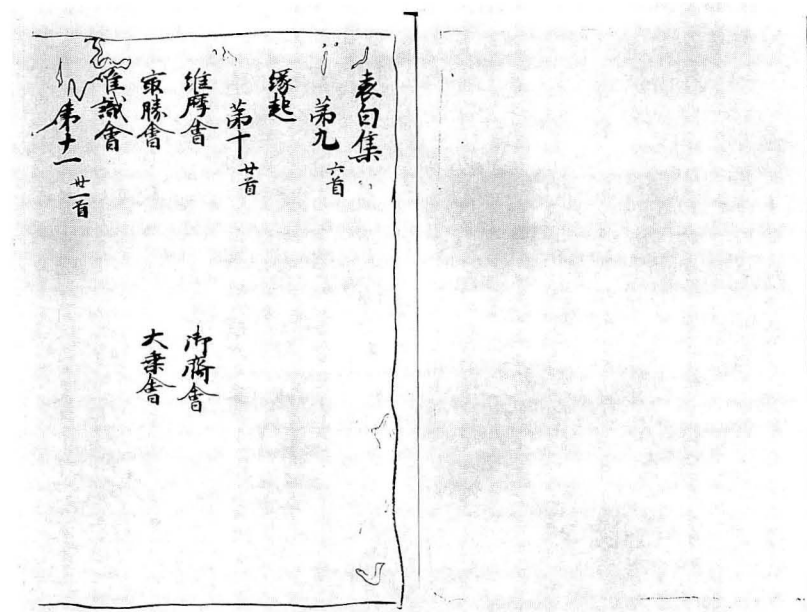 表白集
第九 六首
縁起
第十 廿首
維摩會 御齋會
最勝會 大乗會
唯識會
第十一 廿一首